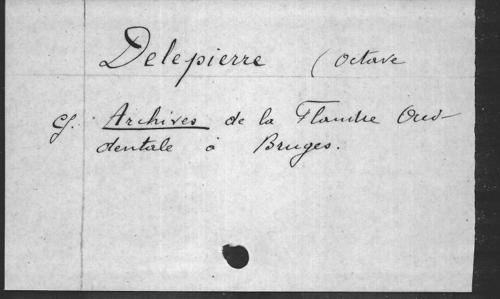 Delepierre (Octave
Cf. Archives de la Flandre Occi-
dentale à Bruges.